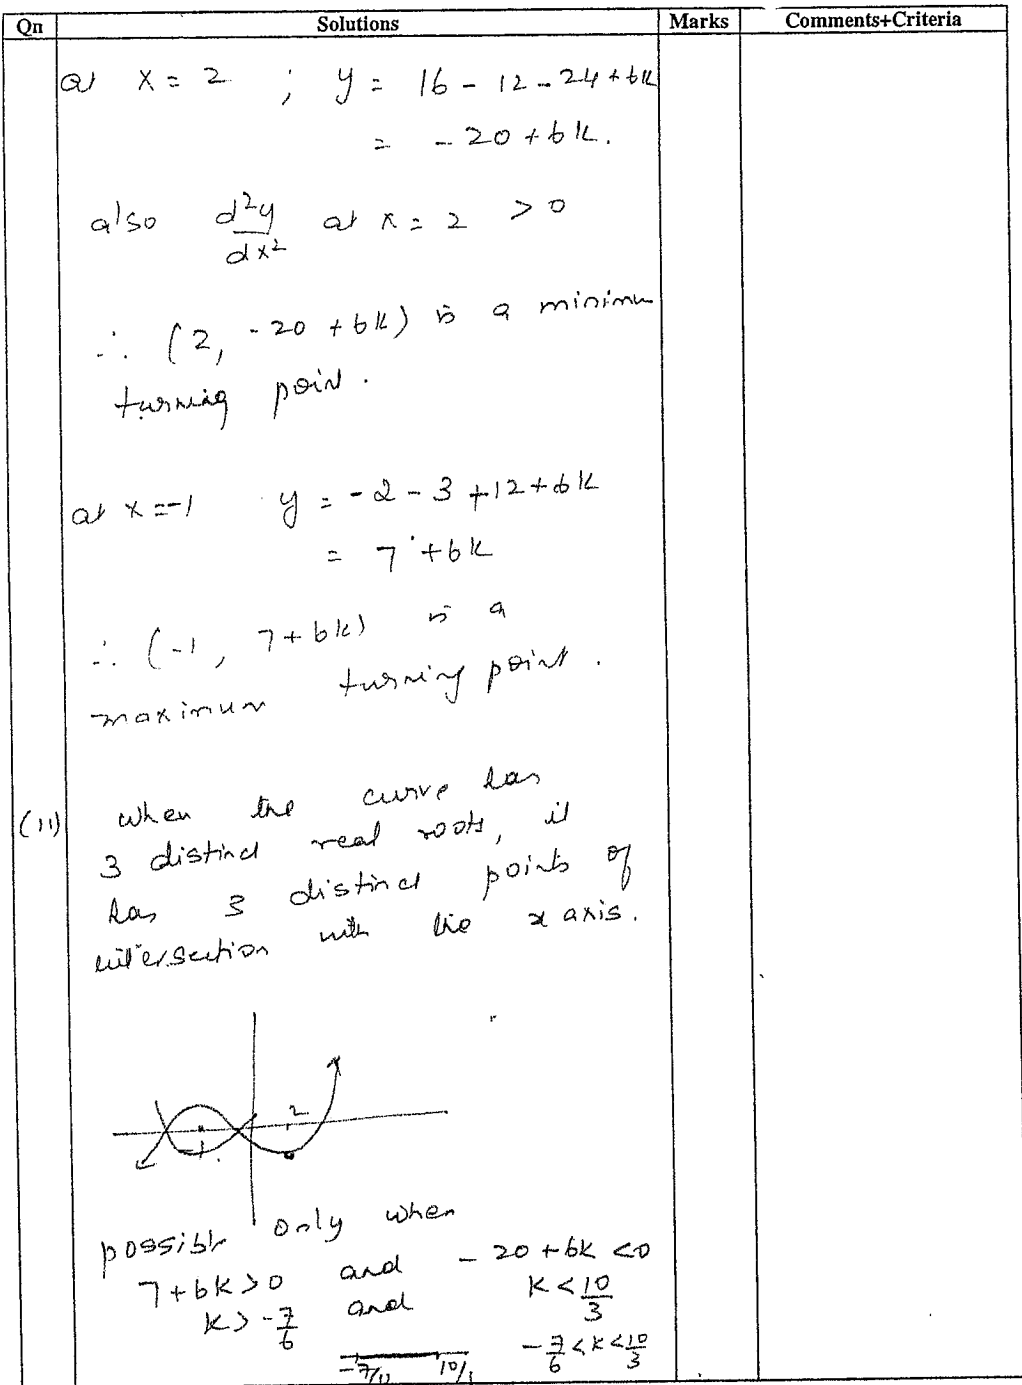 Qn Solutions Marks Comments+Criteria
at x = 2 ; y = 16 - 12 - 24 + 6k
= - 20 + 6k.
also d²y/dx² at x = 2 > 0
∴ (2, -20 + 6k) is a minimu
turning point.
at x = -1 y = -2 - 3 + 12 + 6k
= 7 + 6k
∴ (-1, 7 + 6k) is a
maximum turning point.
(ii) when the curve has
3 distinct real roots, it
has 3 distinct points of
intersection with the x axis.
2
-1
possible only when
7 + 6k > 0 and - 20 + 6k < 0
k > -7/6 and k < 10/3
-7/6 < k < 10/3